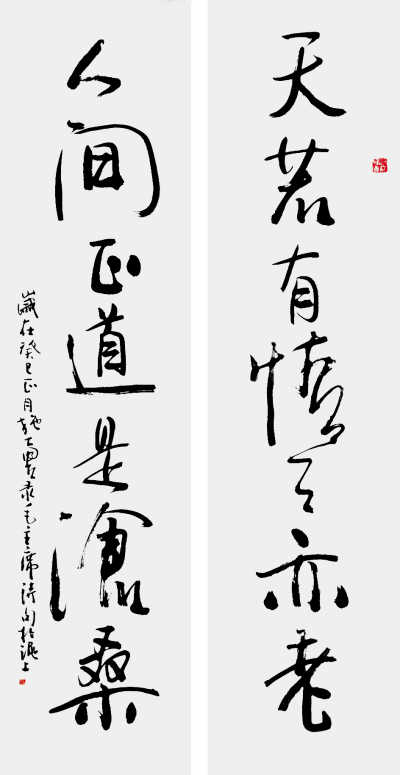 天若有情天亦老
人间正道是滄桑
歲在癸巳正月录毛主席诗句於上